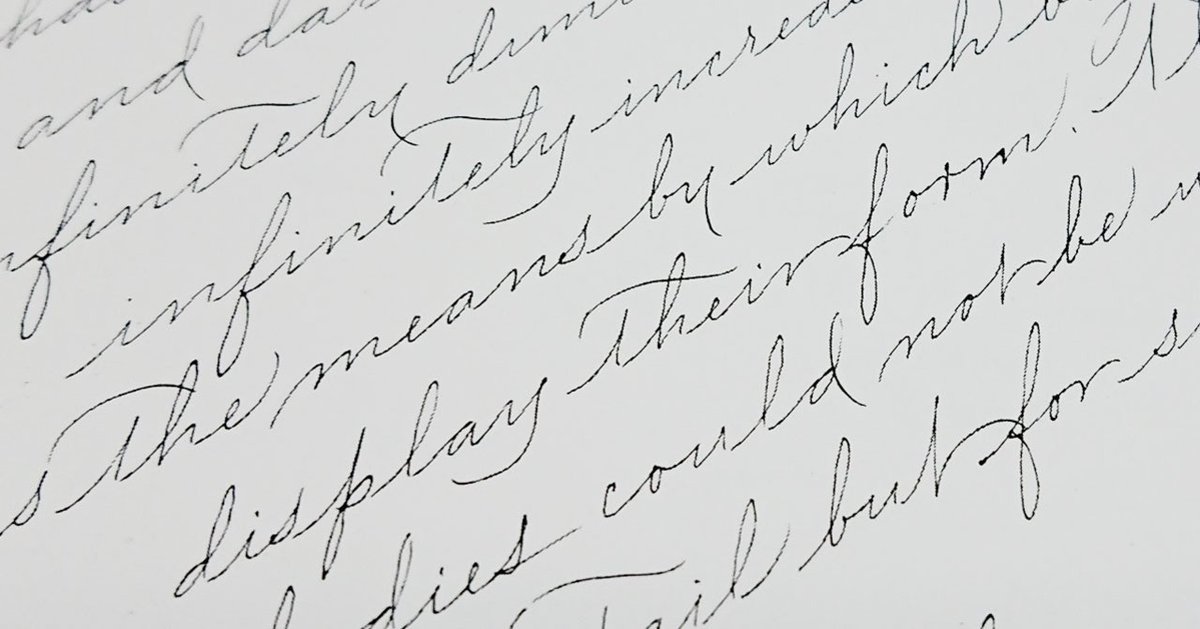 and
nfinitely
infinitely
the means by which
display their form.
dies could not be
tail but for s